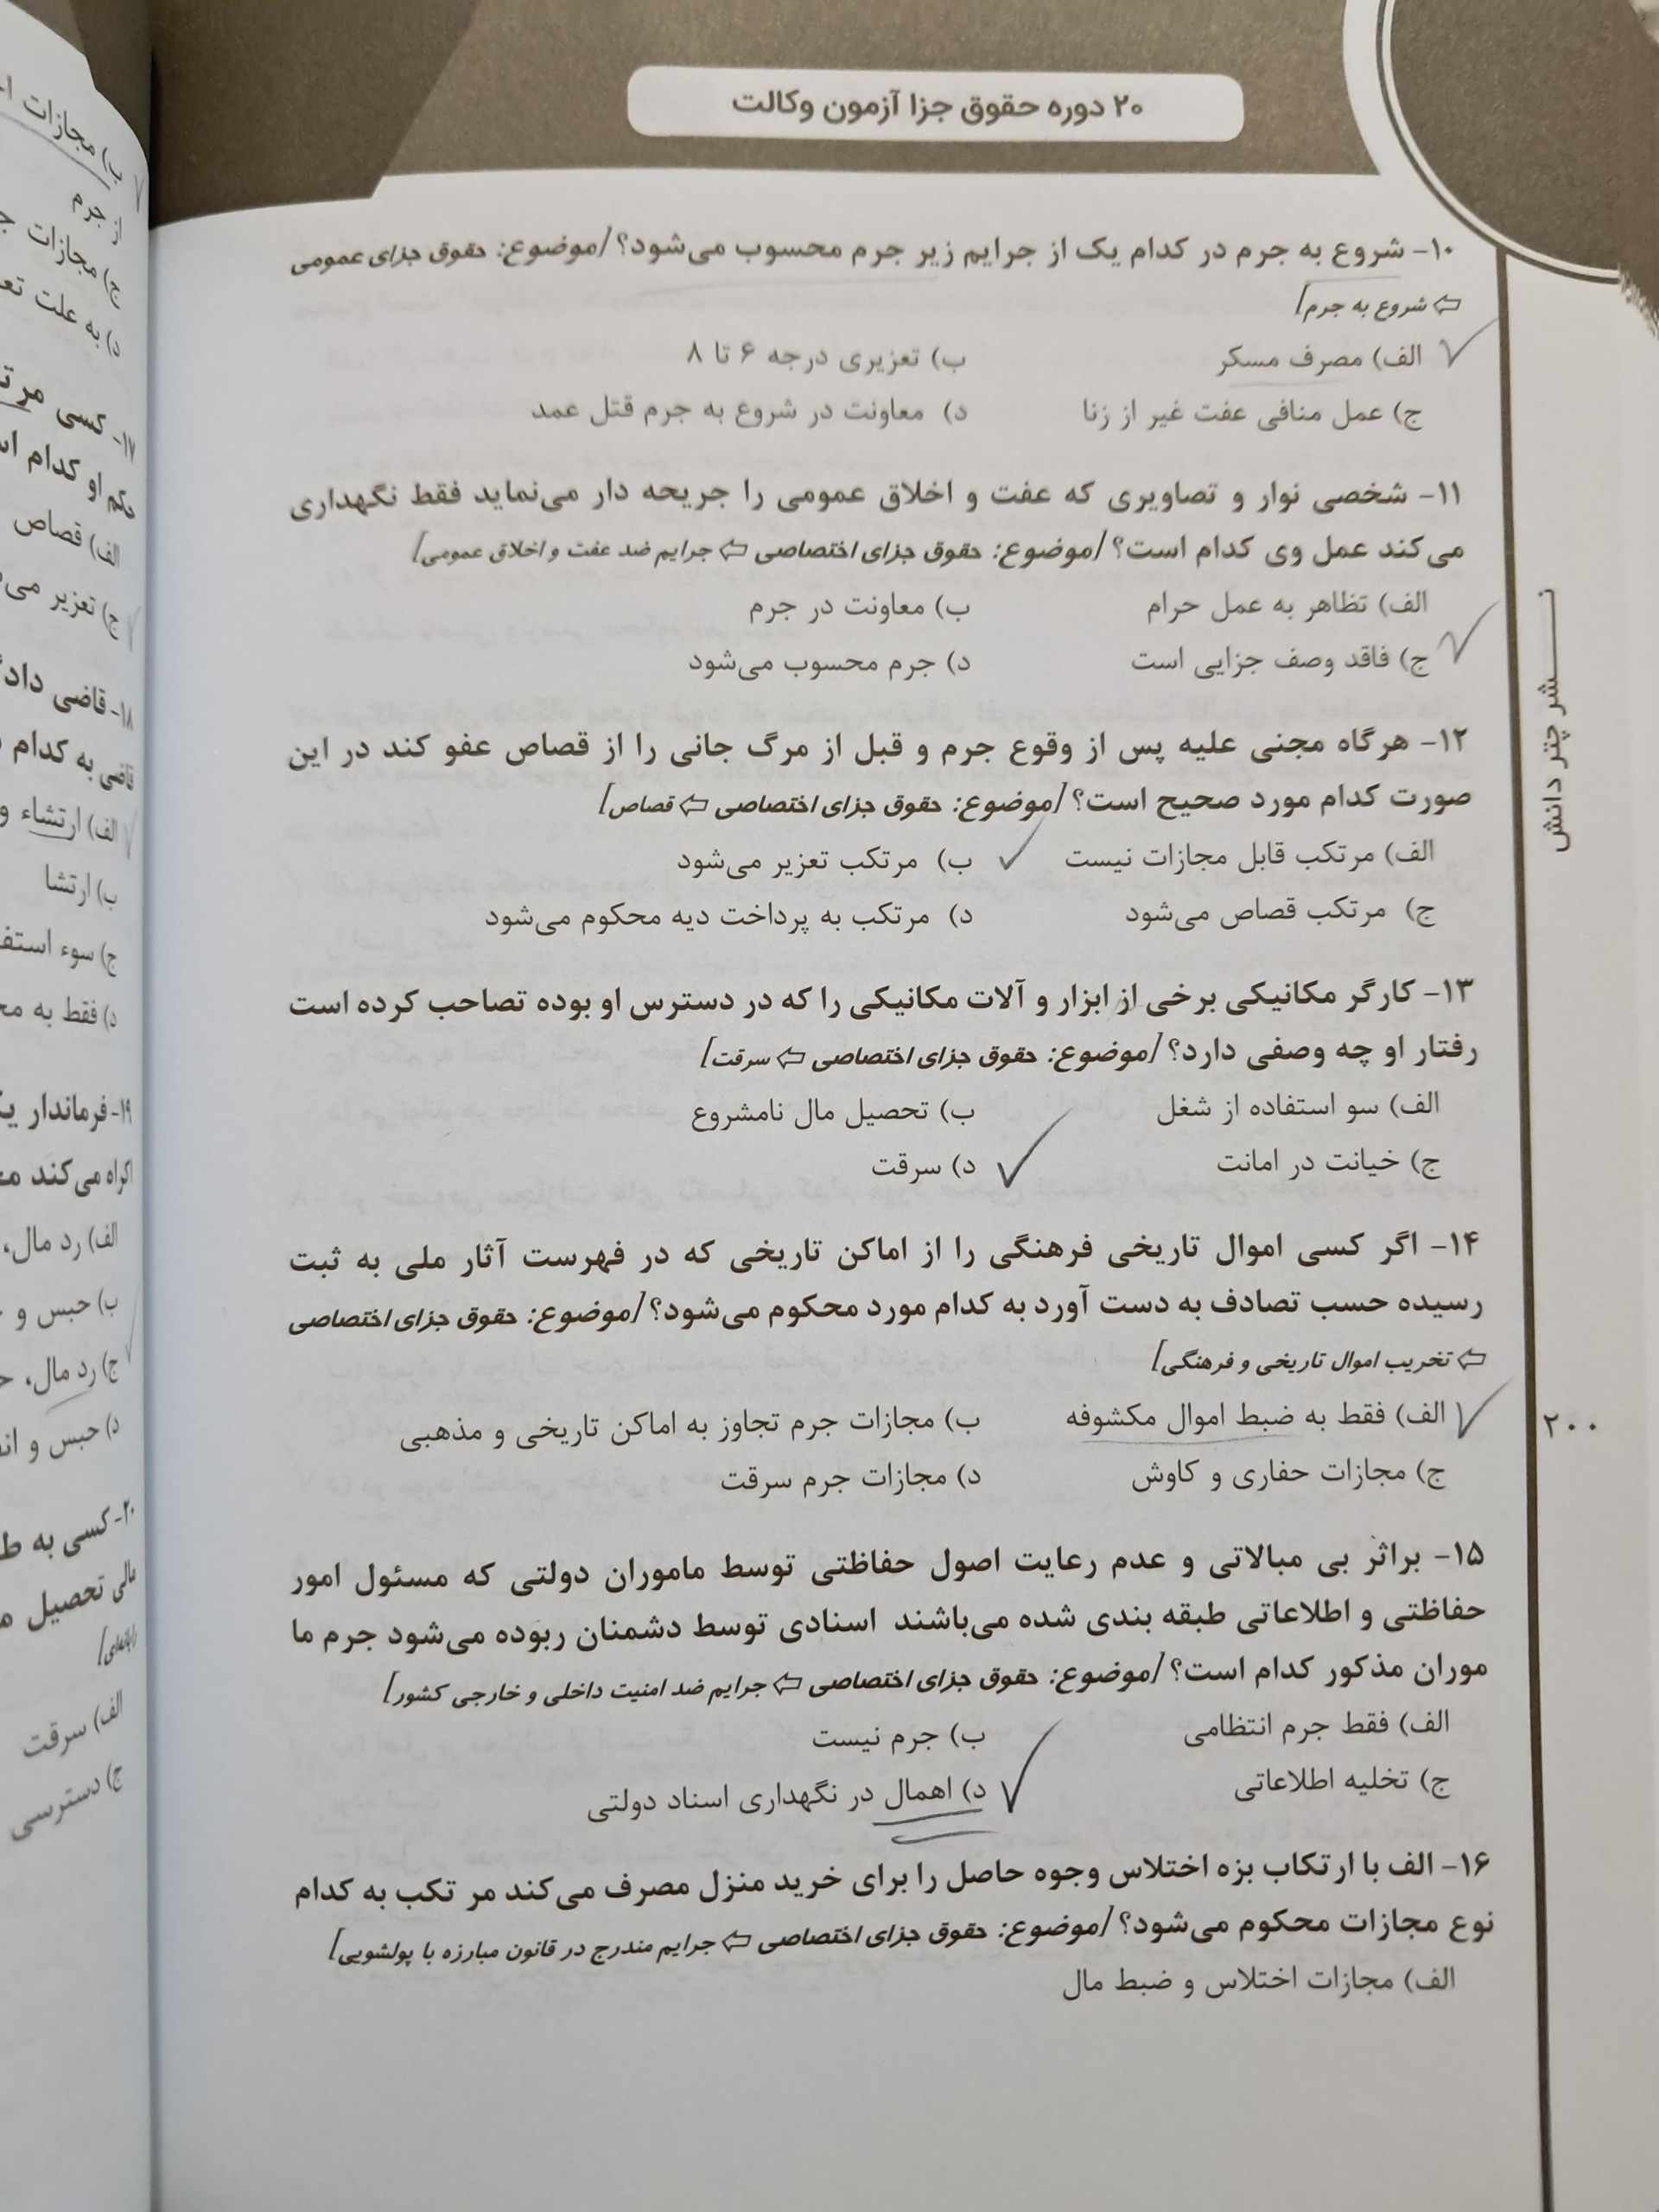 ۲۰ دوره حقوق جزا آزمون وکالت
۱۰- شروع به جرم در کدام یک از جرایم زیر جرم محسوب می‌شود؟ [موضوع: حقوق جزای عمومی
⇦ شروع به جرم]
الف) مصرف مسکر ب) تعزیری درجه ۶ تا ۸
ج) عمل منافی عفت غیر از زنا د) معاونت در شروع به جرم قتل عمد
۱۱- شخصی نوار و تصاویری که عفت و اخلاق عمومی را جریحه دار می‌نماید فقط نگهداری
می‌کند عمل وی کدام است؟ [موضوع: حقوق جزای اختصاصی ⇦ جرایم ضد عفت و اخلاق عمومی]
الف) تظاهر به عمل حرام ب) معاونت در جرم
ج) فاقد وصف جزایی است د) جرم محسوب می‌شود
۱۲- هرگاه مجنی علیه پس از وقوع جرم و قبل از مرگ جانی را از قصاص عفو کند در این
صورت کدام مورد صحیح است؟ [موضوع: حقوق جزای اختصاصی ⇦ قصاص]
الف) مرتکب قابل مجازات نیست ب) مرتکب تعزیر می‌شود
ج) مرتکب قصاص می‌شود د) مرتکب به پرداخت دیه محکوم می‌شود
۱۳- کارگر مکانیکی برخی از ابزار و آلات مکانیکی را که در دسترس او بوده تصاحب کرده است
رفتار او چه وصفی دارد؟ [موضوع: حقوق جزای اختصاصی ⇦ سرقت]
الف) سو استفاده از شغل ب) تحصیل مال نامشروع
ج) خیانت در امانت د) سرقت
۱۴- اگر کسی اموال تاریخی فرهنگی را از اماکن تاریخی که در فهرست آثار ملی به ثبت
رسیده حسب تصادف به دست آورد به کدام مورد محکوم می‌شود؟ [موضوع: حقوق جزای اختصاصی
⇦ تخریب اموال تاریخی و فرهنگی]
الف) فقط به ضبط اموال مکشوفه ب) مجازات جرم تجاوز به اماکن تاریخی و مذهبی
ج) مجازات حفاری و کاوش د) مجازات جرم سرقت
۱۵- براثر بی مبالاتی و عدم رعایت اصول حفاظتی توسط ماموران دولتی که مسئول امور
حفاظتی و اطلاعاتی طبقه بندی شده می‌باشند اسنادی توسط دشمنان ربوده می‌شود جرم ما
موران مذکور کدام است؟ [موضوع: حقوق جزای اختصاصی ⇦ جرایم ضد امنیت داخلی و خارجی کشور]
الف) فقط جرم انتظامی ب) جرم نیست
ج) تخلیه اطلاعاتی د) اهمال در نگهداری اسناد دولتی
۱۶- الف با ارتکاب بزه اختلاس وجوه حاصل را برای خرید منزل مصرف می‌کند مر تکب به کدام
نوع مجازات محکوم می‌شود؟ [موضوع: حقوق جزای اختصاصی ⇦ جرایم مندرج در قانون مبارزه با پولشویی]
الف) مجازات اختلاس و ضبط مال
نشر چتر دانش
۲۰۰
ب) مجازات
از جرم
ج) مجازات
د) به علت
۱۷- کسی
حکم او کدام
الف) قصاص
ج) تعزیر
۱۸- قاضی
قاضی به کدام
الف) ارتشاء و
ب) ارتشا
ج) سوء
د) فقط به
۱۹- فرماندار
اکراه می‌کند
الف) رد مال،
ب) حبس و
ج) رد مال،
د) حبس و
۲۰- کسی به
مالی تحصیل
الف) سرقت
ج) دسترسی